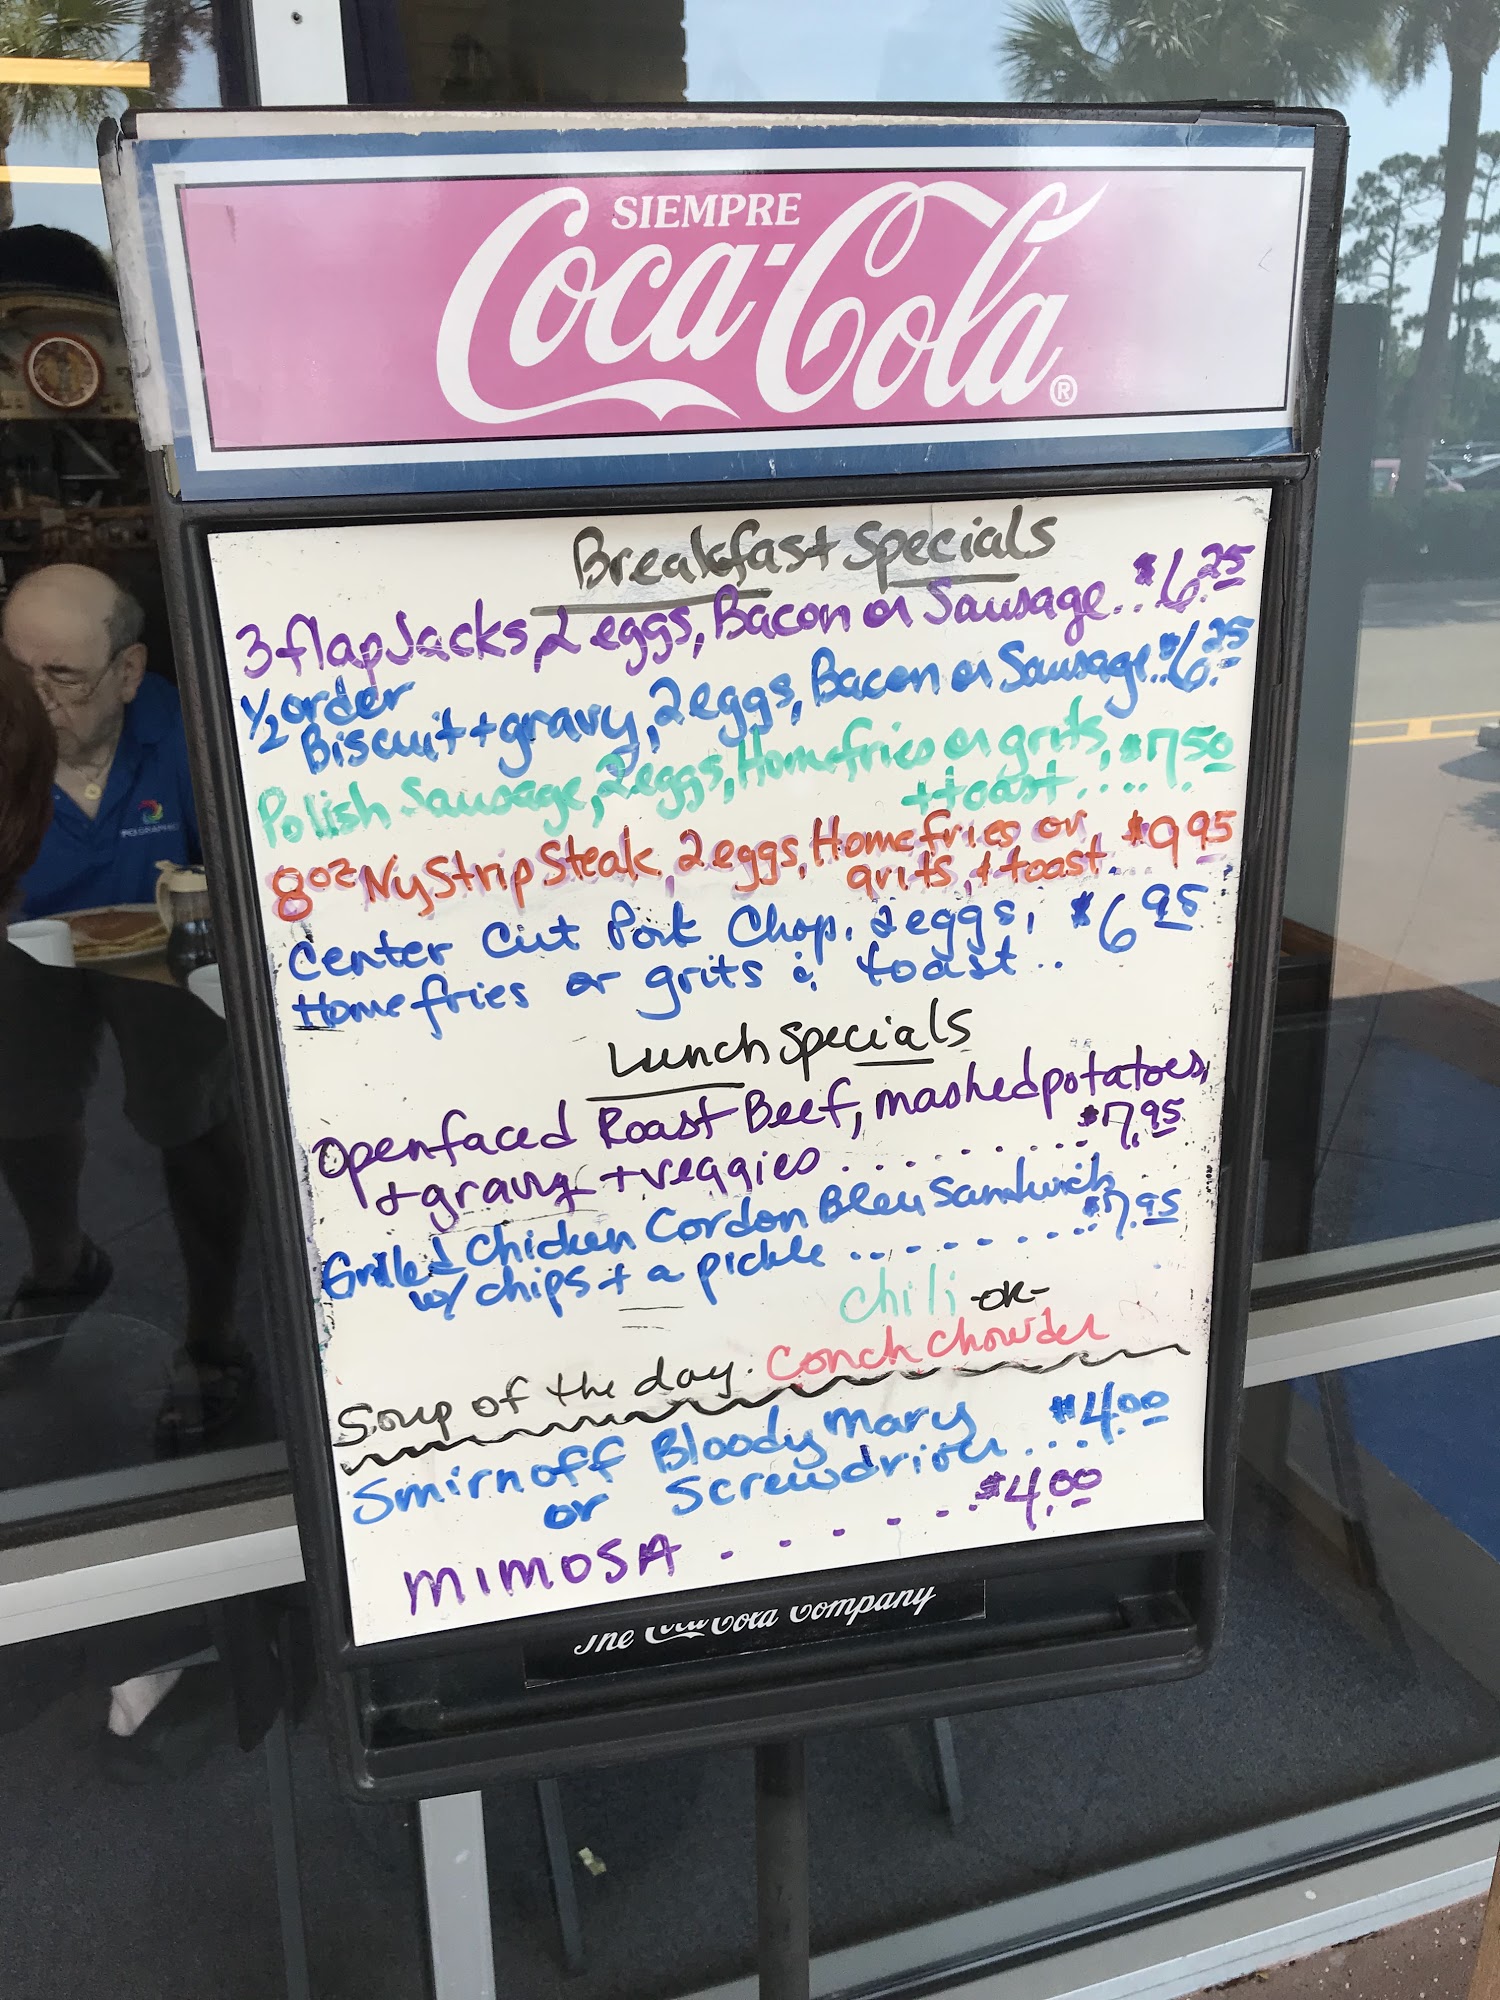 SIEMPRE
Coca-Cola®
Breakfast Specials
3 flapJacks, 2 eggs, Bacon or Sausage..$6.25
1/2 order
Biscuit + gravy, 2 eggs, Bacon or Sausage..$6.25
Polish Sausage, 2 eggs, Homefries or grits,
+ toast..... $7.50
8oz Ny Strip Steak, 2 eggs, Homefries or
grits, & toast. $9.95
Center Cut Pork Chop, 2 eggs, $6.95
Homefries or grits & toast..
Lunch Specials
Openfaced Roast Beef, mashed potatoes,
+ gravy + veggies ......... $7.95
Grilled Chicken Cordon Bleu Sandwich
w/ chips + a pickle ......... $7.95
Chili -or-
Soup of the day. Conch Chowder
Smirnoff Bloody Mary
or Screwdriver .... $4.00
MIMOSA ....... $4.00
The Coca-Cola Company